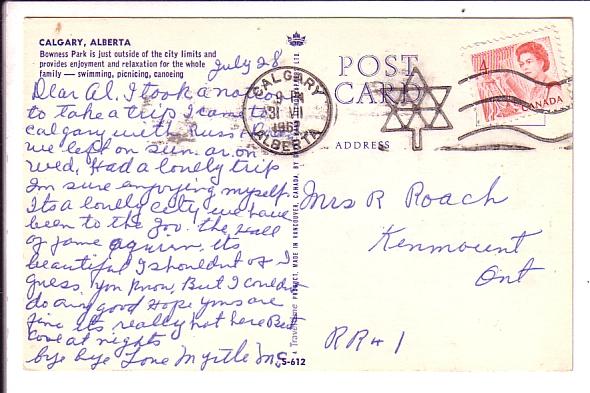 CALGARY, ALBERTA
Bowness Park is just outside of the city limits and
provides enjoyment and relaxation for the whole
family — swimming, picnicing, canoeing
July 28
Dear Al. I took a
to take a trip I came to
Calgary with Russ
we left on sun. ar. on
Wed. Had a lonely trip
Im sure enjoying myself
Its a lonely city we have
been to the Zoo. the Hall
of fame aquiriu. its
beautiful I shouldnt of I
guess. you know, But I couldn
do any good Hope yous are
fine its really hot here But
cool at nights
bye bye Love Myrtle Mc
POST
CARD
ADDRESS
CALGARY
9 PM
31 VII
196
ALBERTA
4
CANADA
Mrs R Roach
Kenmount
Ont
RR # 1
PRODUCT, MADE IN VANCOUVER, CANADA, BY
S-612